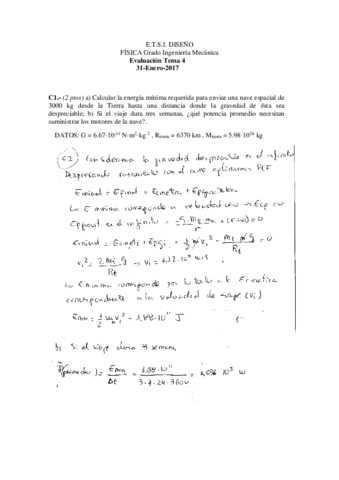 E.T.S.I. DISEÑO
FÍSICA Grado Ingeniería Mecánica
Evaluación Tema 4
31-Enero-2017
C1.- (2 ptos) a) Calcular la energía mínima requerida para enviar una nave espacial de
3000 kg desde la Tierra hasta una distancia donde la gravedad de ésta sea
despreciable; b) Si el viaje dura tres semanas, ¿qué potencia promedio necesitan
suministrar los motores de la nave?.
DATOS: G = 6.67·10⁻¹¹ N·m²·kg⁻², R = 6370 km, M = 5.98·10²⁴ kg
Consideramos la gravedad despreciable en el infinito
Despreciando rozamiento con el aire aplicamos
E inicial = E final =
La E mínima corresponde a velocidad = 0
en el infinito = (r=∞) = 0
E inicial = = ½ m vi² - = 0
vi² = → vi = 1,12·10⁴ m/s
La E mínima corresponde por lo tanto a la E cinética
correspondiente a la velocidad de escape (vi)
Emin = ½ m vi² = 1,88·10¹¹ J
b) Si el viaje dura 3 semanas
P(promedio) = Emin/Δt = 1,88·10¹¹/3·7·24·3600 = 10⁵ W